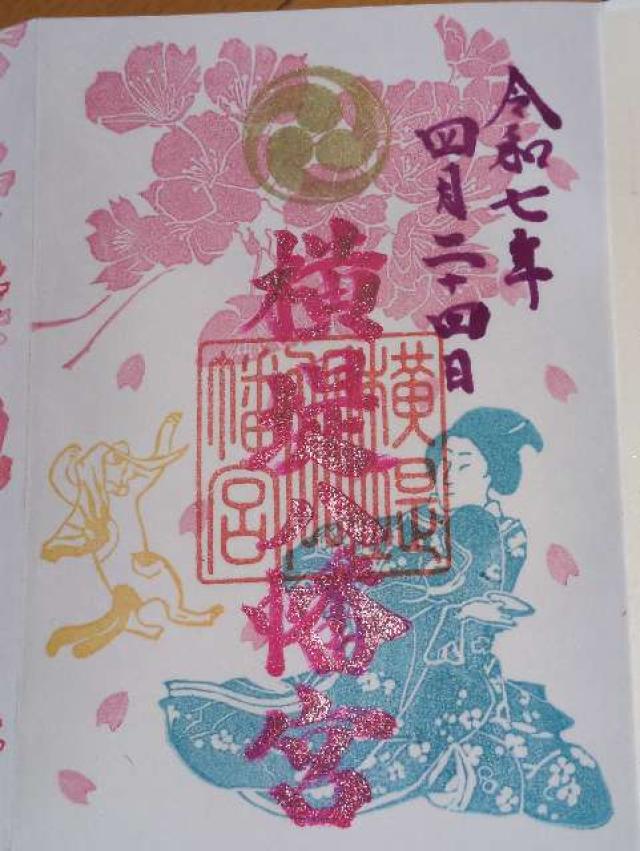 令和七年
四月二十四日
横堤八幡宮
横堤八幡宮